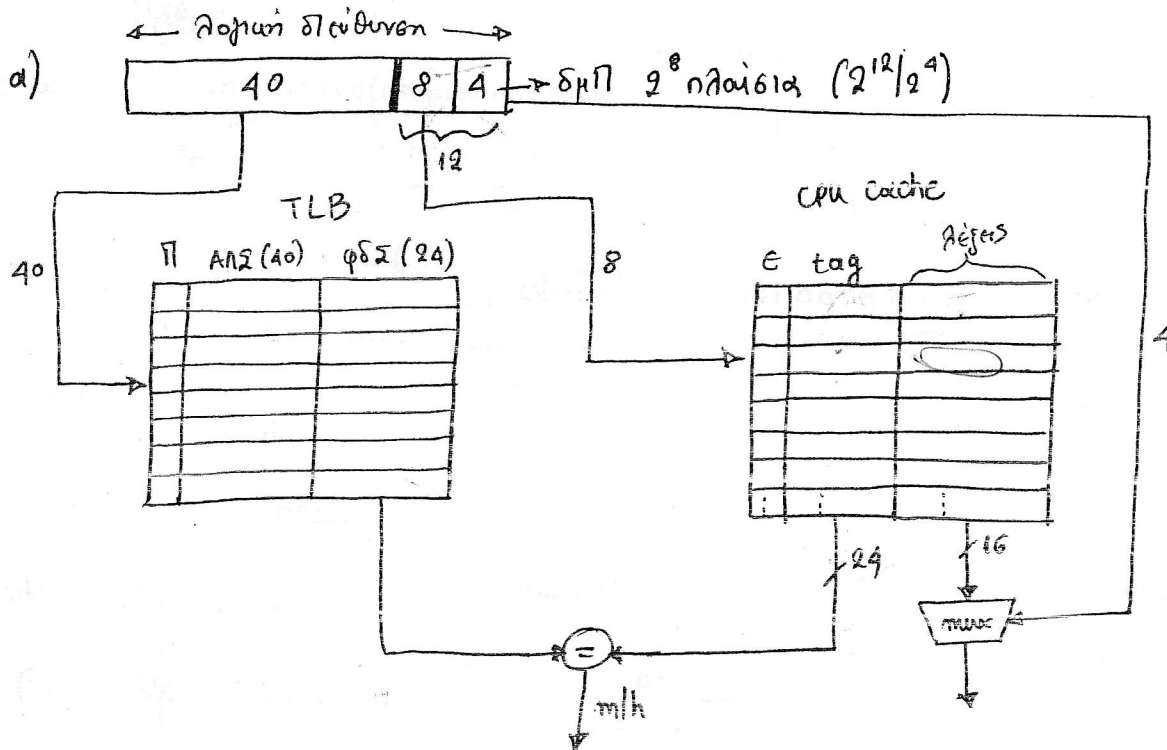 λογική διεύθυνση
α)
40 8 4 δμΠ 2⁸ πλαίσια (2¹²/2⁴)
12
TLB
cpu cache
Π ΑΠΣ (40) φδΣ (24)
ε tag λέξεις
40
8
4
24
16
mux
=
m/h